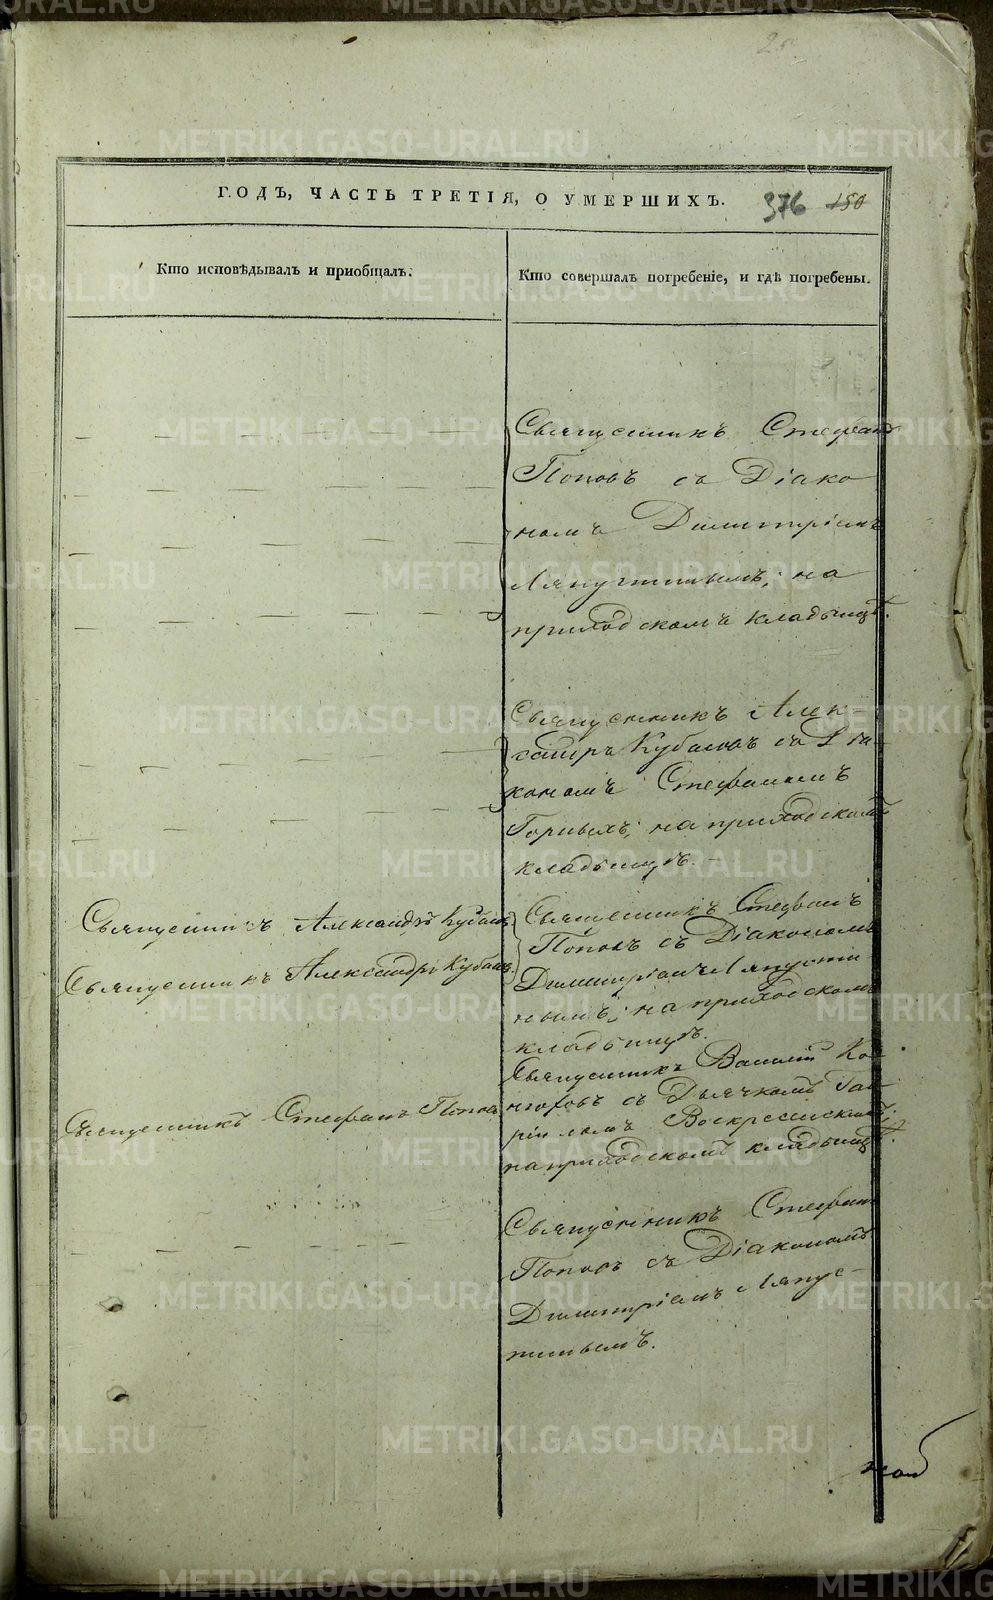 ГОДЪ, ЧАСТЬ ТРЕТІЯ, О УМЕРШИХЪ.
376 150
Кто исповѣдывалъ и пріобщалъ.
Кто совершалъ погребеніе, и гдѣ погребены.
Священникъ Стефанъ
Поповъ съ Діако
номъ Димитріемъ
Ляпустинымъ; на
приходскомъ кладбищѣ.
Священникъ Алек-
сандръ Кубасовъ съ Діа
кономъ Стефаномъ
Горныхъ; на приходскомъ
кладбищѣ.
Священникъ Александръ
Священникъ Александръ
Священникъ Стефанъ
Поповъ съ Діакономъ
Димитріемъ Ляпусти
нымъ; на приходскомъ
кладбищѣ.
Священникъ Стефанъ Поповъ
Священникъ Василій
съ Дьячкомъ Гав
ріиломъ Воскресенскимъ;
на приходскомъ кладбищѣ.
Священникъ Стефанъ
Поповъ съ Діакономъ
Димитріемъ Ляпус-
тинымъ.
METRIKI.GASO-URAL.RU